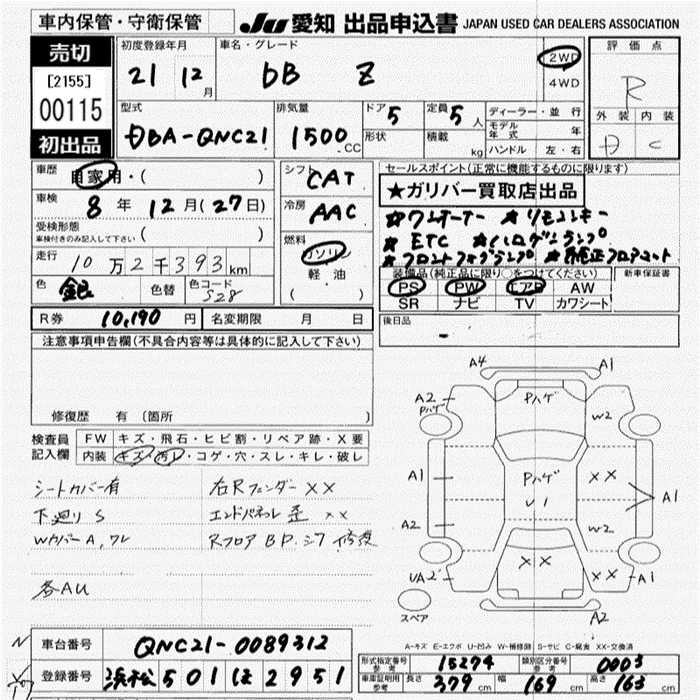 車内保管・守衛保管
JU 愛知 出品申込書 JAPAN USED CAR DEALERS ASSOCIATION
売切
[2155]
00115
初出品
初度登録年月
21 12月
車名・グレード
bB Z
2WD
4WD
評価点
R
外装 内装
D C
型式
DBA-QNC21
排気量
1500 CC
ドア 5
形状
定員 5人
積載 kg
ディーラー・並行
モデル年式 年
ハンドル 左・右
車歴 自家用・( )
車検 8年 12月(27日)
受検形態
車検付きのみ記入して下さい ( )
走行 10万2千393km
色 銀 色替 色コード S28
シフト CAT
冷房 AAC
燃料
ガソリン
軽油
( )
セールスポイント(正常に機能するものに限ります)
★ガリバー買取店出品
★ワンオーナー ★リモコンキー
★ETC ★ハロゲンランプ
★フロントフォグランプ ★純正フロアマット
装備品(純正品に限り○をつけてください) 新車保証書
PS PW エアB AW
SR ナビ TV カワシート
R券 10,190円 名変期限 月 日
後日品
-
注意事項申告欄(不具合内容等は具体的に記入して下さい)
修復歴 有 (箇所 )
検査員記入欄
FW キズ・飛石・ヒビ割・リペア跡・X要
内装 キズ・汚レ・コゲ・穴・スレ・キレ・破レ
シートカバー有
下廻りS
WカバーA,ワレ
各AU
右Rフェンダー XX
エンドパネル歪 XX
Rフロア BP.シワ 修復
A4 A1
A2 Pハゲ Pハゲ W2
A1 Pハゲ U1 XX A1
A2 W2
UA2 XX XX A1
スペア A2
A-キズ E-エクボ U-凹み W-補修跡 S-サビ C-腐食 XX-交換済
車台番号 QNC21-0089312
登録番号 浜松 501 ほ 2951
形式指定番号 参考 15274 類別区分番号 参考 0003
車庫証明用 参考 長さ 379cm 幅 169cm 高さ 163cm